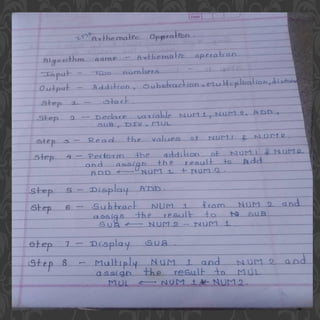 Arthematic Operation
Algorithm name - Arthematic operation
Input - Two numbers
Output - Addition, Substraction, Multiplication,
Step 1 - Start
Step 2 - Declare variable NUM1, NUM2, ADD,
SUB, DIV, MUL
Step 3 - Read the values of NUM1 & NUM2.
Step 4 - Perform the addition of NUM1 & NUM2
and assign the result to Add
ADD ← NUM 1 + NUM 2.
Step 5 - Display ADD.
Step 6 - Subtract NUM 1 from NUM 2 and
assign the result to SUB
SUB ← NUM 2 - NUM 1
Step 7 - Display SUB.
Step 8 - Multiply NUM 1 and NUM 2 and
assign the result to MUL
MUL ← NUM 1 * NUM 2.